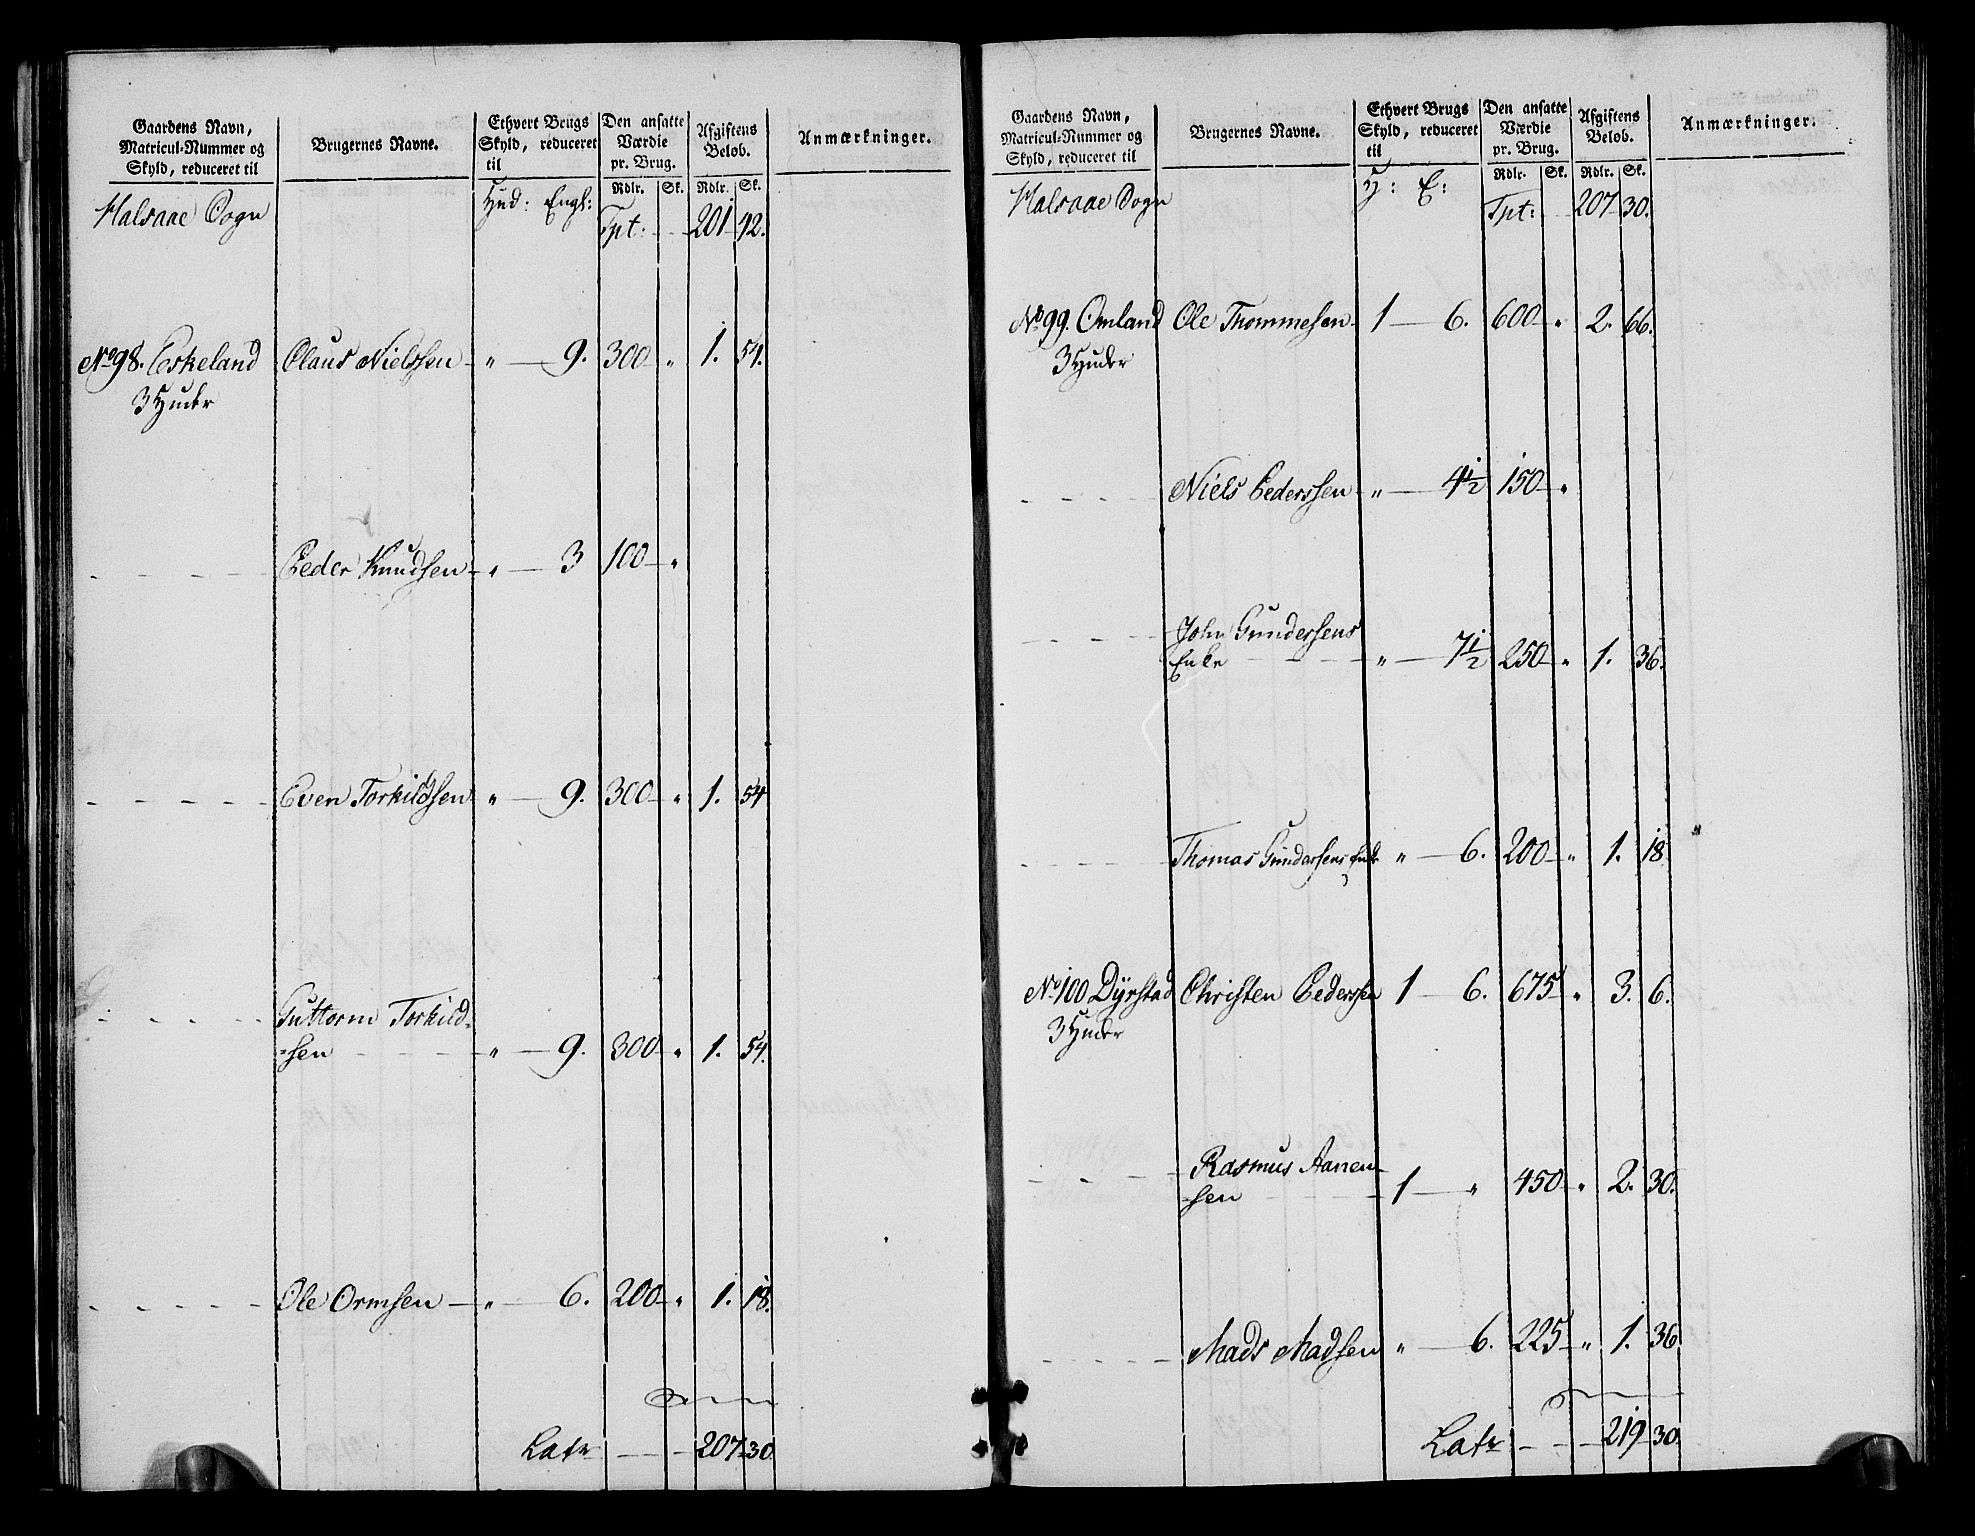 Gaardens Navn, Matricul-Nummer og Skyld, reduceret til
Brugernes Navne.
Ethvert Brugs Skyld, reduceret til
Den ansatte Værdie pr. Brug.
Afgiftens Belob.
Anmærkninger.
Rdlr. Sk. Rdlr. Sk.
Halsaae Sogn Hud: Engl: Tpt: 201 42.
No 98. Eskeland Claus Nielssen " 9. 300 " 1. 54.
3 Huder
Peder Knudsen " 3 100 "
Even Torkildsen " 9. 300 " 1. 54
Guttorm Torkild-
-sen " 9. 300 " 1. 54.
Ole Ormsen " 6. 200 " 1. 18.
Latr 207 30
Gaardens Navn, Matricul-Nummer og Skyld, reduceret til
Brugernes Navne.
Ethvert Brugs Skyld, reduceret til
Den ansatte Værdie pr. Brug.
Afgiftens Belob.
Anmærkninger.
Rdlr. Sk. Rdlr. Sk.
Halsaae Sogn H: E: Tpt: 207 30.
No 99. Omland Ole Thommesen 1 6. 600 " 2. 66.
3 Huder
Niels Pederssen " 4½ 150 "
John Gunderssens
Enke " 7½ 250 " 1. 36.
Thomas Gunderssens Enke " 6. 200 " 1. 18
No 100 Dÿrstad Christen Pederssen 1 6. 675 " 3. 6.
3 Huder
Rasmus Aanen-
-sen 1 " 450 " 2. 30.
Mads Madsen " 6. 225 " 1. 36
Latr 219 30